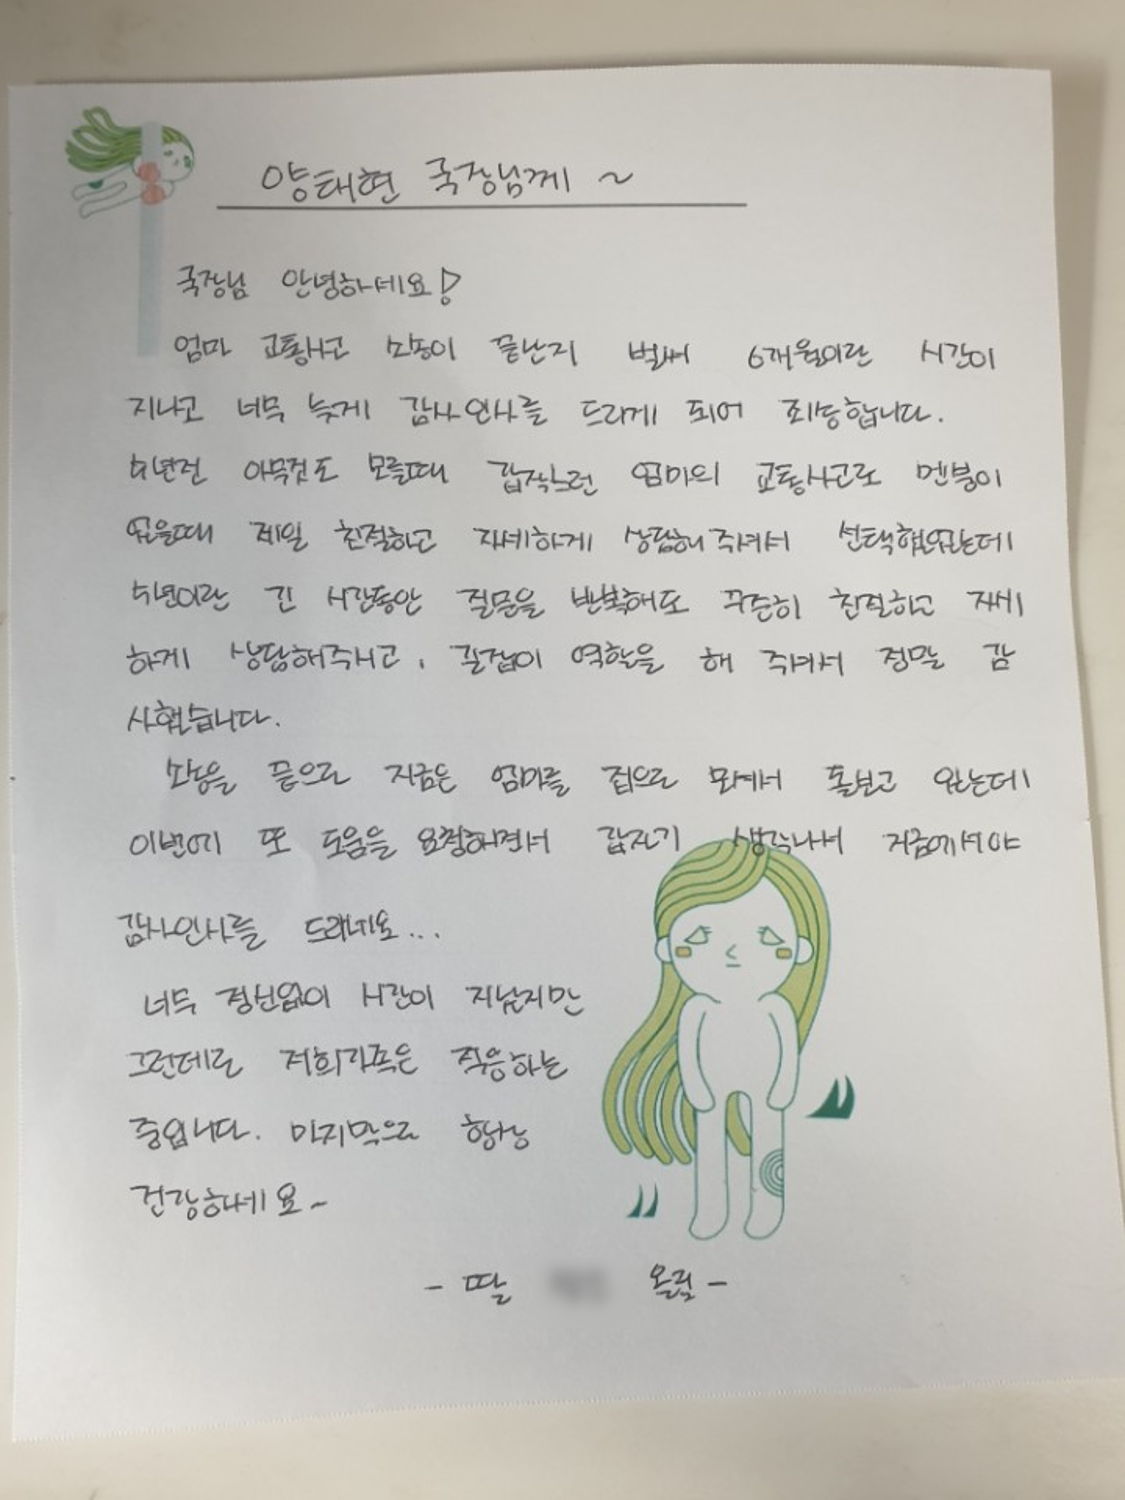 양태현 국장님께 ~
국장님 안녕하세요!
엄마 교통사고 소송이 끝난지 벌써 6개월이란 시간이
지나고 너무 늦게 감사인사를 드리게 되어 죄송합니다.
4년전 아무것도 모를때 갑작스런 엄마의 교통사고로 멘붕이
였을때 제일 친절하고 자세하게 상담해 주셔서 선택했었는데
4년이란 긴 시간동안 질문을 반복해도 꾸준히 친절하고 자세
하게 상담해주시고, 길잡이 역할을 해 주셔서 정말 감
사했습니다.
소송을 끝으로 지금은 엄마를 집으로 모셔서 돌보고 있는데
이번에 또 도움을 요청해면서 갑자기 생각나서 지금에서야
감사인사를 드리네요...
너무 정신없이 시간이 지났지만
그런데로 저희가족은 적응하는
중입니다. 마지막으로 항상
건강하세요~
- 딸 올림 -